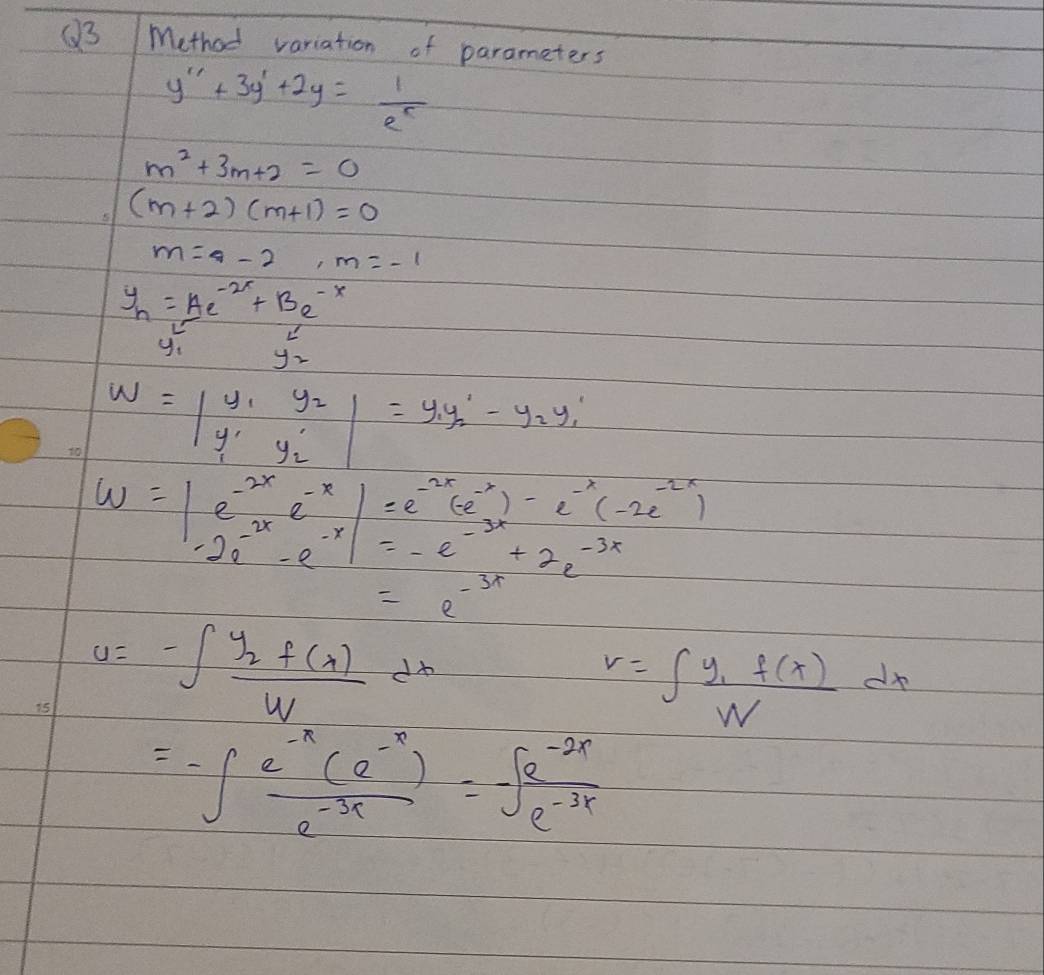 Q3 Method variation of parameters
y'' + 3y' + 2y = 1/e^x
m² + 3m + 2 = 0
5 (m+2)(m+1) = 0
m = -2 , m = -1
y_h = Ae^-2x + Be^-x
y₁ y₂
W = | y₁ y₂ | = y₁y₂' - y₂y₁'
| y₁' y₂' |
10
W = | e^-2x e^-x | = e^-2x(-e^-x) - e^-x(-2e^-2x)
-2e^-2x -e^-x | = -e^-3x + 2e^-3x
= e^-3x
u = -∫ y₂ f(x)/W dx v = ∫ y₁ f(x)/W dx
15
= -∫ e^-x (e^-x)/e^-3x = ∫ e^-2x/e^-3x